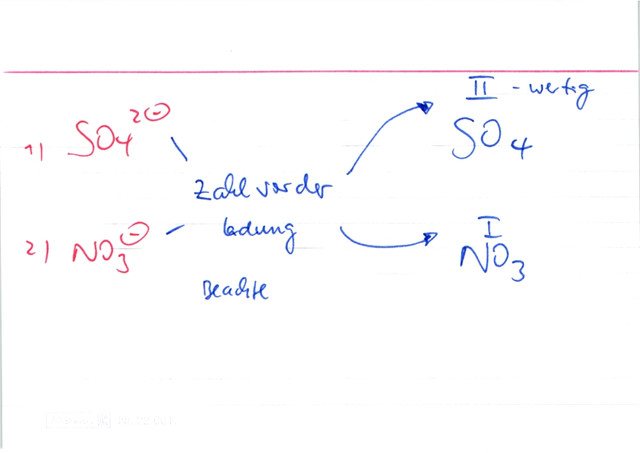 1) SO₄²⊖
2) NO₃⊖
Zahl vor der
Ladung
Beachte
II - wertig
SO₄
I
NO₃